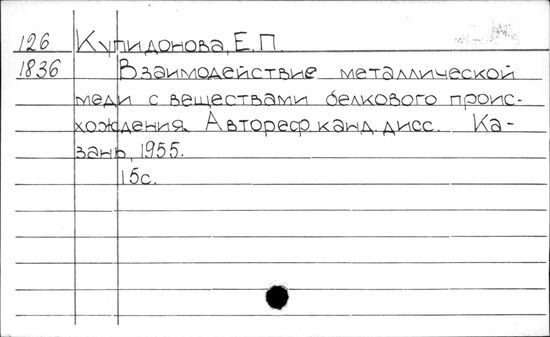 126 Купидонова, Е.П.
1836 Взаимодействие металлической
меди с веществами белкового проис-
хождения. Автореф. канд. дисс. Ка-
зань, 1955.
15с.